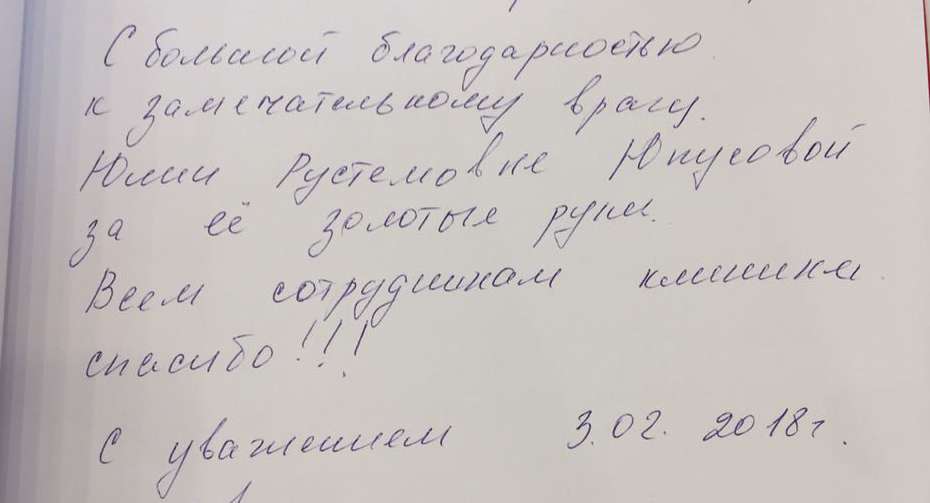 С большой благодарностью
к замечательному врачу.
Юлии Рустемовне Юнусовой
за её золотые руки.
Всем сотрудникам клиники
спасибо!!!
С уважением 3.02. 2018г.